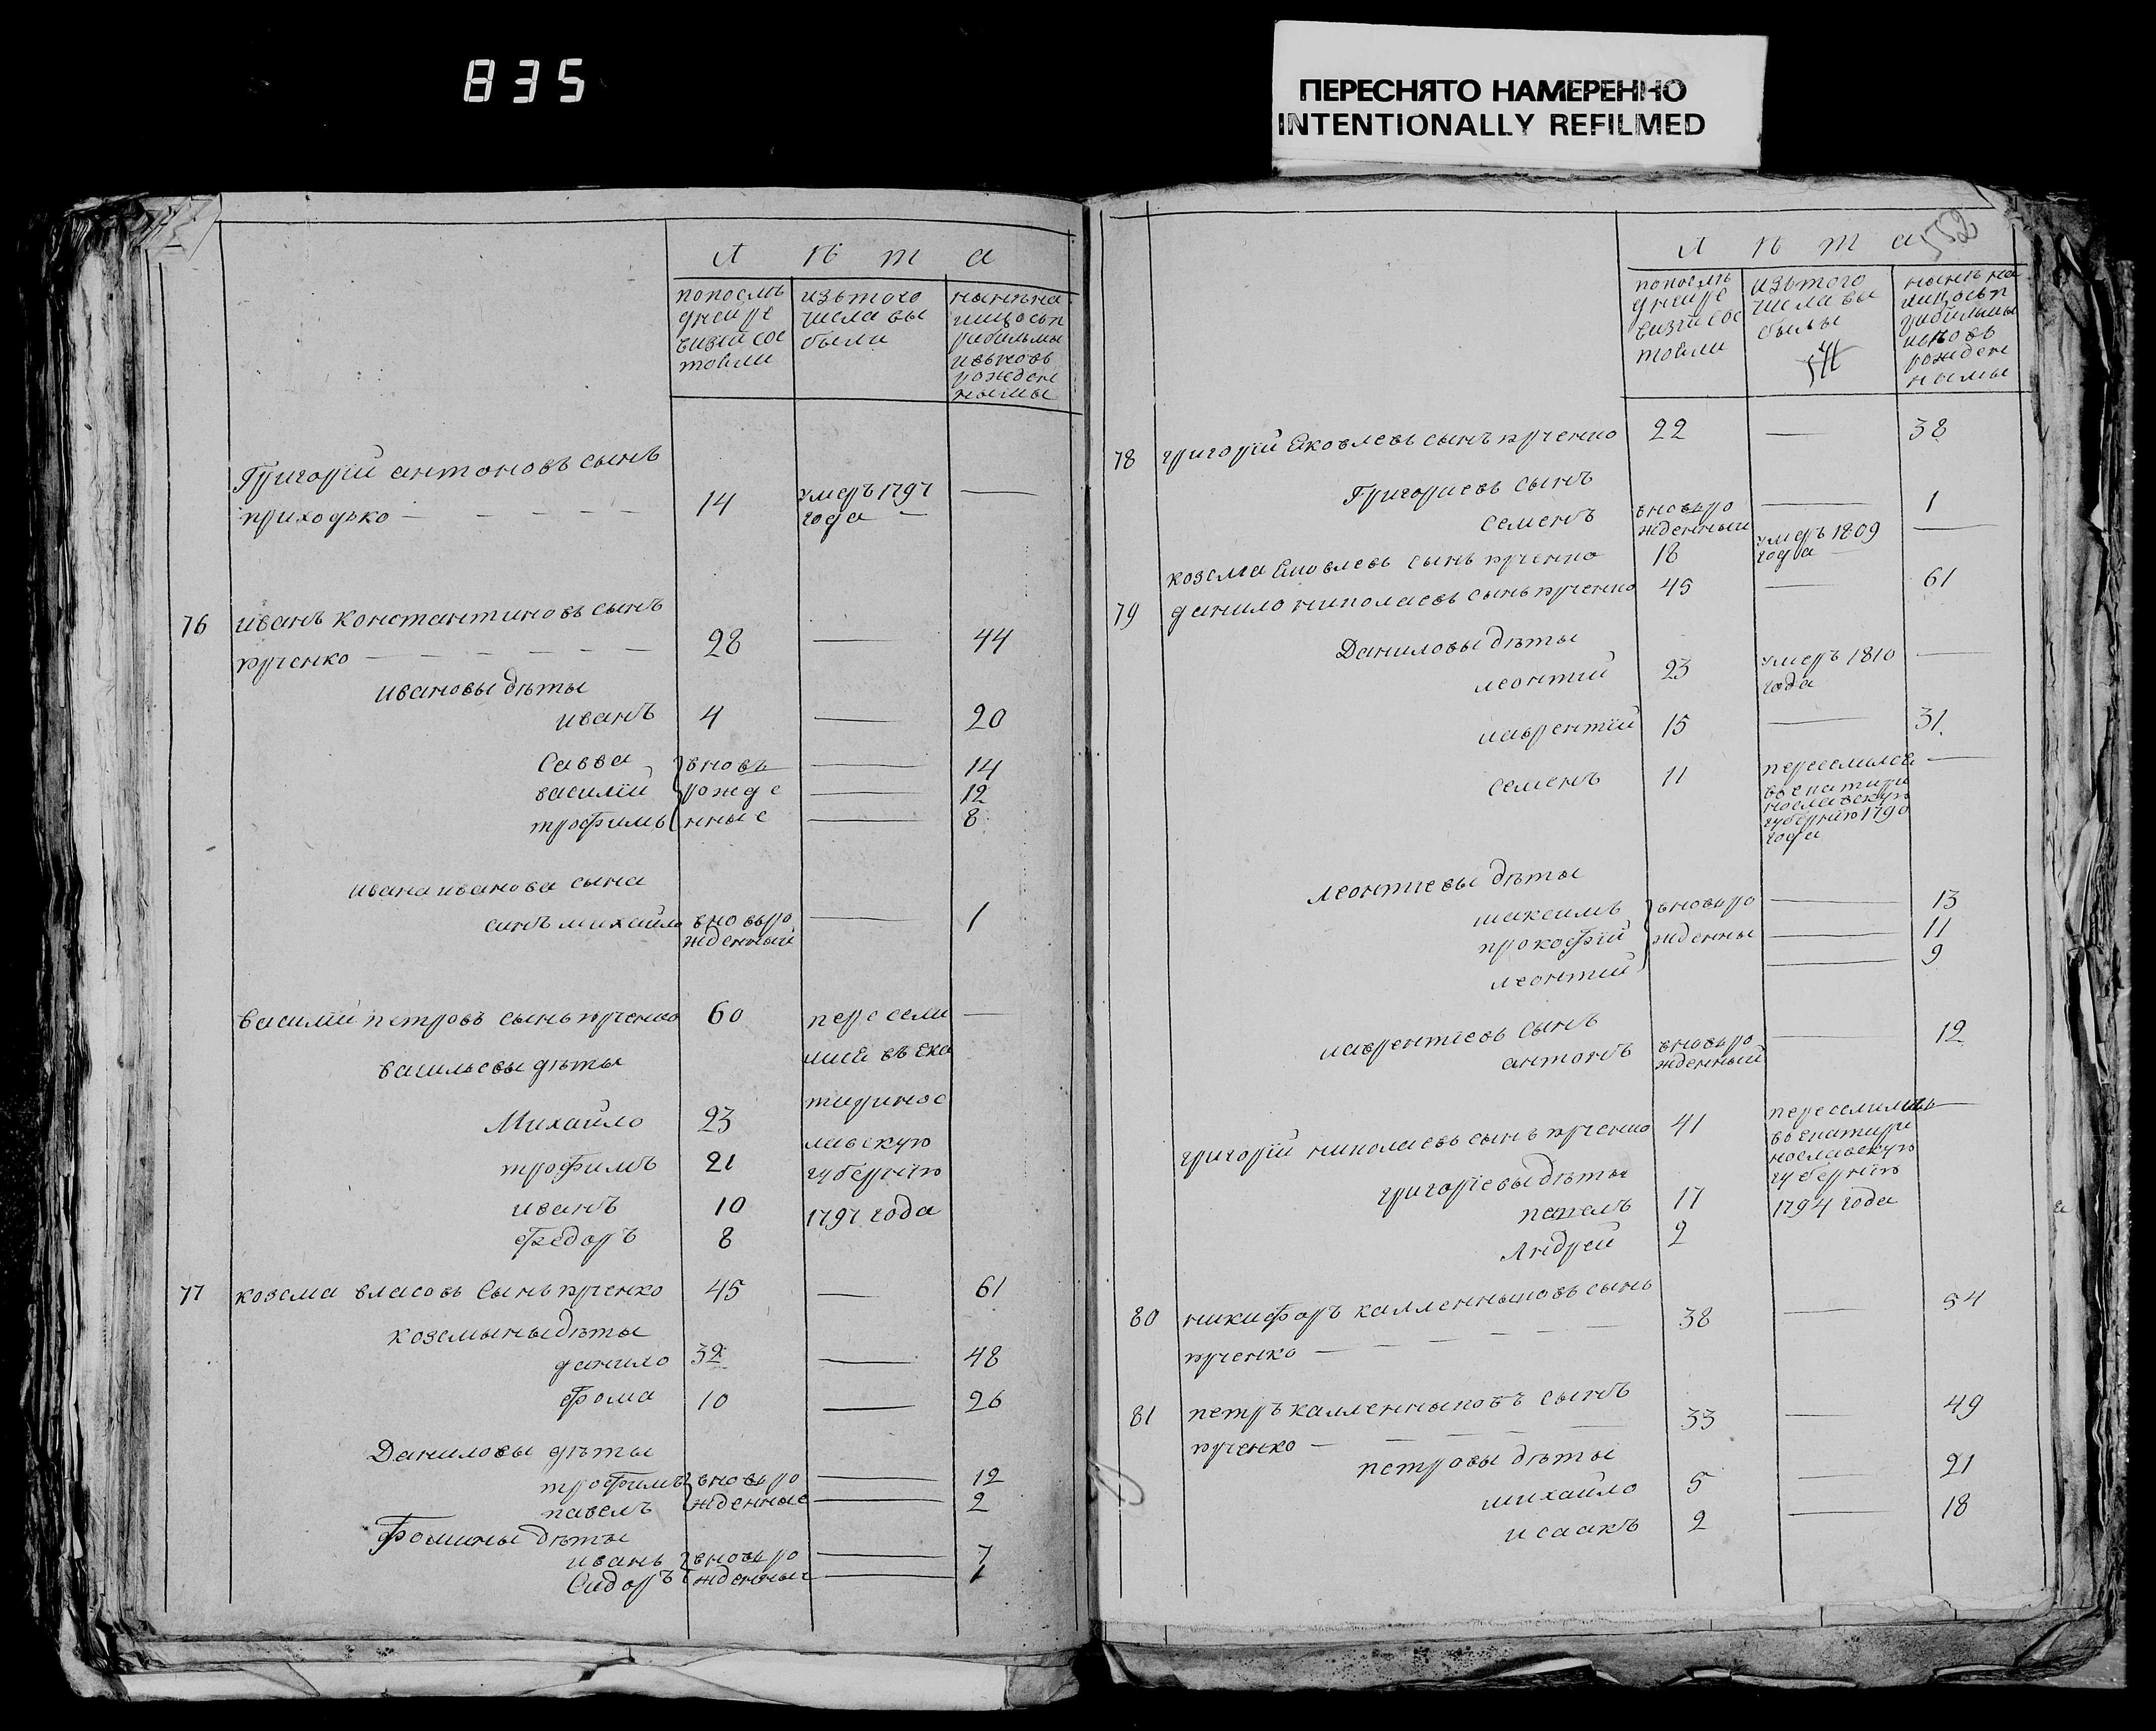 835
ПЕРЕСНЯТО НАМЕРЕННО
INTENTIONALLY REFILMED
Л ѣ т а
попослѣ
дней ре
визіи сос
тояли
изътого
числа вы
были
нынѣ на
лицо съп
рибылыми
ивновь
рожден
ными
Григорій антоновъ сынъ
приходько — — — — —
14
умеръ 1797
года —
—
76
иванъ константиновъ сынъ
ярченко — — — — —
28
—
44
ивановы дѣты
иванъ 4 — 20
Савва вновь — 14
василій рожде — 12
трофимъ нные — 8
ивана иванова сына
синъ михайло вновьро — 1
жденный
василій петровъ сынъ ярченко 60 пересели —
лися въ ека
васильевы дѣты
теринос
Михайло 23
лавскую
трофимъ 21 губернію
иванъ 10 1797 года
федоръ 8
77 козма власовъ Сынъ ярченко 45 — 61
козмыны дѣты
данило 32 — 48
фома 10 — 26
Даниловы дѣты
трофимъ вновьро — 12
павелъ жденные — 2
Фомины дѣты
иванъ вновьро — 7
Сидоръ жденные — 1
552
Л ѣ т а
попослѣ
дней ре
визіи сос
тояли
изътого
числа вы
были
нынѣ на
лицо съп
рибылыми
ивновь
рожден
ными
78 григорій Яковлевъ сынъ ярченко 22 — 38
Григориевъ сынъ
семенъ вновьро — 1
жденный
козма Яковлевъ сынъ ярченко 18 умеръ 1809 —
года
79 данило николаевъ сынъ ярченко 45 — 61
Даниловы дѣты
леонтий 23 умеръ 1810 —
года
лаврентій 15 — 31.
семенъ 11 переселился —
въ екатери
нославскую
губернію 1790
года
леонтіевы дѣты
максимъ вновьро — 13
прокофій жденны — 11
леонтий — 9
лаврентіевъ сынъ
антонъ вновьро — 12
жденный
григорій николаевъ сынъ ярченко 41 переселились —
въ екатери
нославскую
григоріевы дѣты губернію
павелъ 17 1794 года
Андрей 2
80 никифоръ калленниковъ сынъ
38 — 54
ярченко — — — — —
81 петръ калленниковъ сынъ
33 — 49
ярченко — — — —
петровы дѣты
михайло 5 — 21
исаакъ 2 — 18